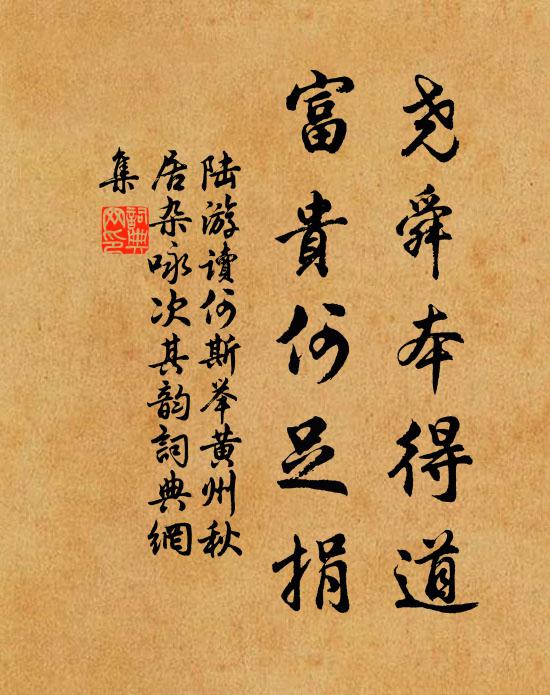 尧舜本得道
富貴何足捐
陆游讀何斯举黄州秋
居杂咏次其韵詞典網
集
詞典
网印